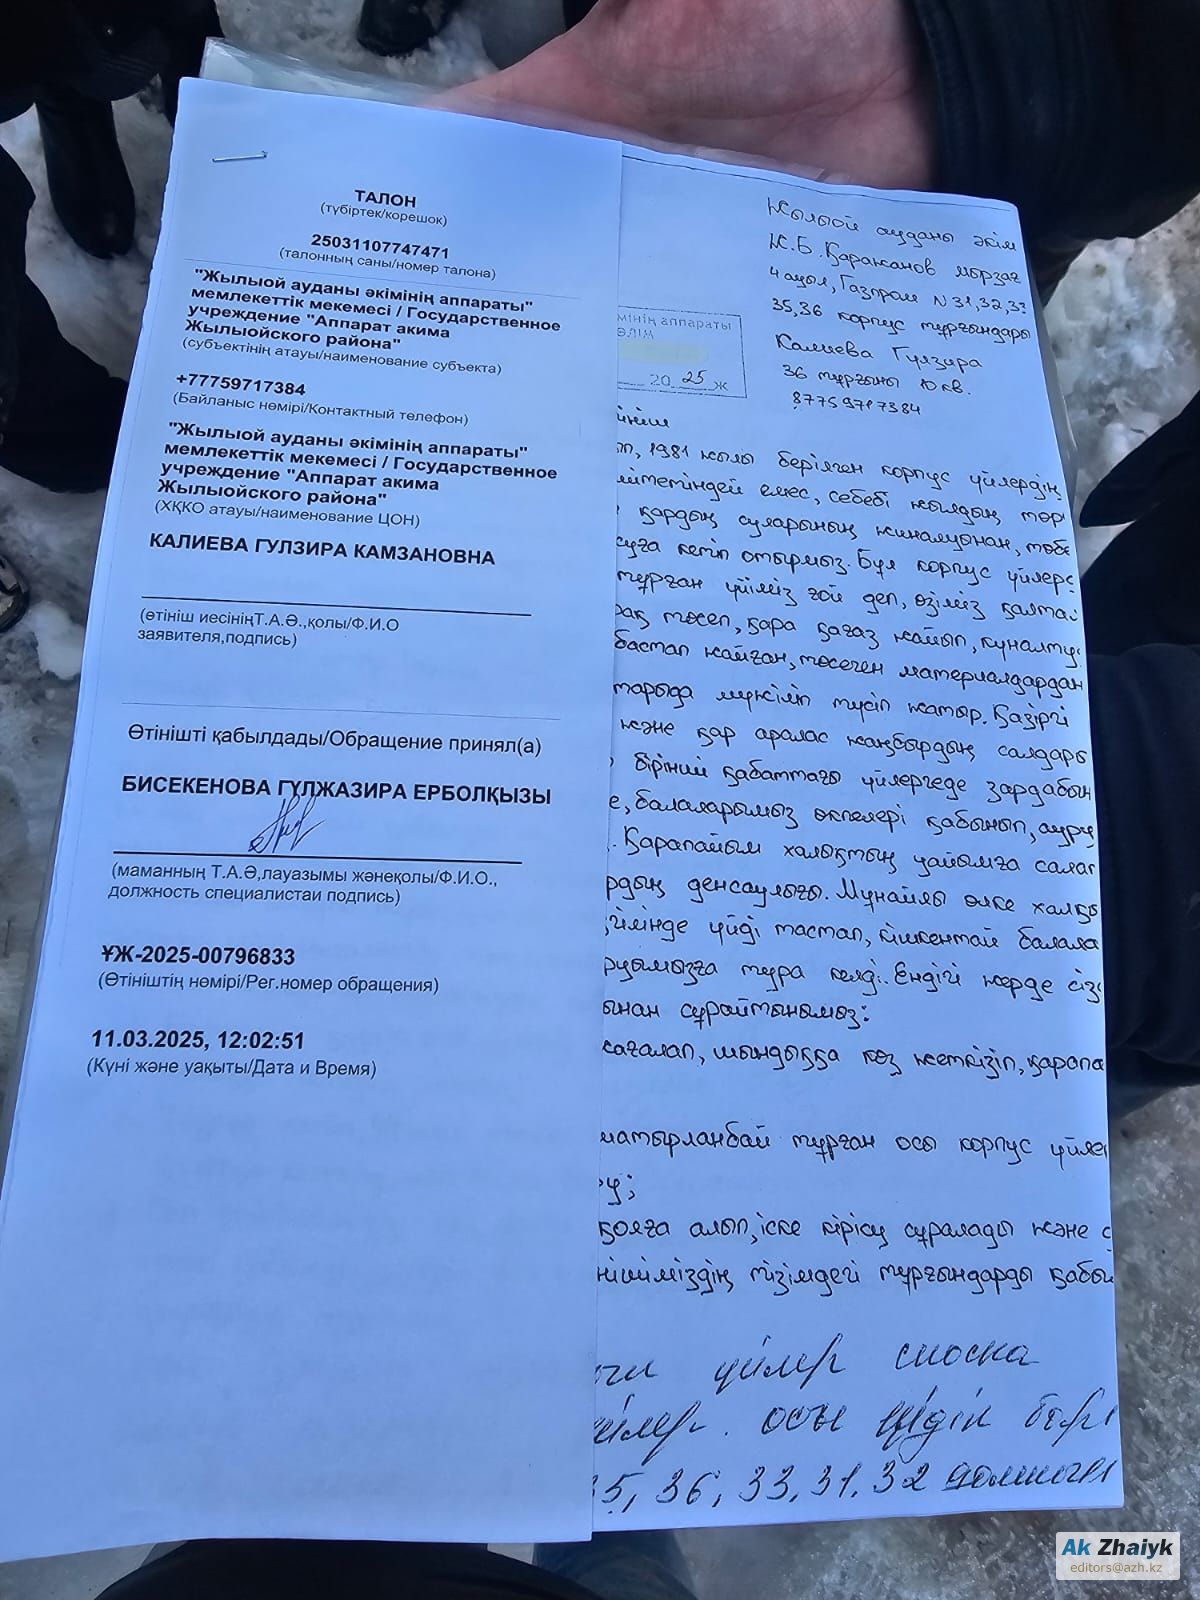 ТАЛОН
(түбіртек/корешок)
25031107747471
(талонның саны/номер талона)
"Жылыой ауданы әкімінің аппараты"
мемлекеттік мекемесі / Государственное
учреждение "Аппарат акима
Жылыойского района"
(субъектінің атауы/наименование субъекта)
+77759717384
(Байланыс нөмірі/Контактный телефон)
"Жылыой ауданы әкімінің аппараты"
мемлекеттік мекемесі / Государственное
учреждение "Аппарат акима
Жылыойского района"
(ХҚКО атауы/наименование ЦОН)
КАЛИЕВА ГУЛЗИРА КАМЗАНОВНА
(өтініш иесініңТ.А.Ә.,қолы/Ф.И.О
заявителя,подпись)
Өтінішті қабылдады/Обращение принял(а)
БИСЕКЕНОВА ГҮЛЖАЗИРА ЕРБОЛҚЫЗЫ
(маманның Т.А.Ә,лауазымы жәнеқолы/Ф.И.О.,
должность специалистаи подпись)
ҰЖ-2025-00796833
(Өтініштің нөмірі/Рег.номер обращения)
11.03.2025, 12:02:51
(Күні және уақыты/Дата и Время)
Жылыой ауданы әкім
Ж.Б. Қаражанов мырзағ
4 ауыл, Газпром N 31,32,33
35,36 корпус тұрғындары
Калиева Гулзира
36 тұрғыны 10 кв.
87759717384
мінің аппараты
ӨЛІМ
20 25 ж
1981 жылы берілген корпус үйлердің
емес, себебі жылдың төр
қардың суларының жиналуынан, төбе
суға кетіп отырмыз. Бұл корпус үйлер
тұрған үйіміз ғой деп, өзіміз қалта
төсеп, қара қағаз жайып, күналту
бастап жайған, төсеген материалдардан
түсіп жатыр. Қазіргі
және қар аралас жаңбырдың салдары
бірінші қабаттағы үйлергеде зардабын
е, балаларымыз өкпелері қабынып, ауру
. Қарапайым халықтың уайымға салат
рдың денсаулығы. Мұнайлы өлке халқы
үйді тастап, кішкентай балала
руымызға тура келді. Ендігі жерде сіз
ынан сұрайтынымыз:
сағалап, шындыққа көз жеткізіп, қарапа
шатырланбай тұрған осы корпус үйлер
у;
қолға алып, іске кірісу сұралады және с
нішіміздің тізімдегі тұрғындарды қабы
үйлер сноска
үйлер. осы үйдің бәрі
35, 36, 33, 31, 32
Ak Zhaiyk
editors@azh.kz